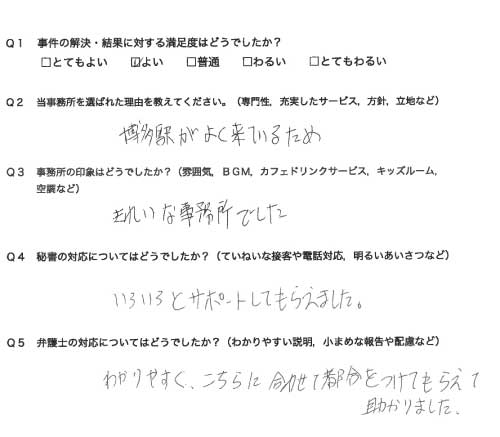 Q1 事件の解決・結果に対する満足度はどうでしたか?
□とてもよい ☑よい □普通 □わるい □とてもわるい
Q2 当事務所を選ばれた理由を教えてください。(専門性,充実したサービス,方針,立地など)
博多駅がよく来ているため
Q3 事務所の印象はどうでしたか?(雰囲気,BGM,カフェドリンクサービス,キッズルーム,
空調など)
きれいな事務所でした
Q4 秘書の対応についてはどうでしたか?(ていねいな接客や電話対応,明るいあいさつなど)
いろいろとサポートしてもらえました。
Q5 弁護士の対応についてはどうでしたか?(わかりやすい説明,小まめな報告や配慮など)
わかりやすく、こちらに合わせて都合をつけてもらえて
助かりました。